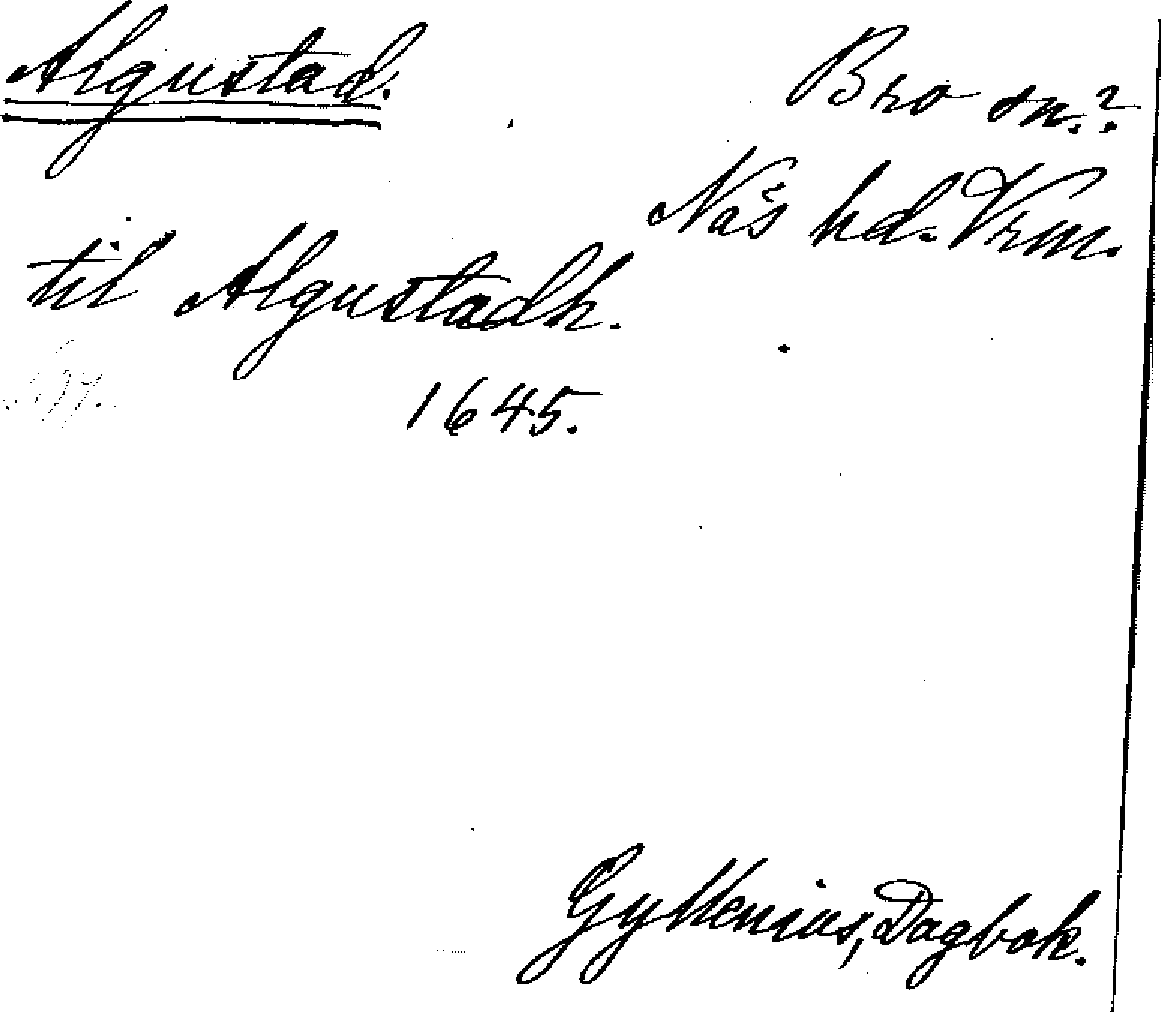 Algustad.
Bro sn.?
Näs hd. Vrm.
til Algustadh.
1645.
Gyllenius, Dagbok.